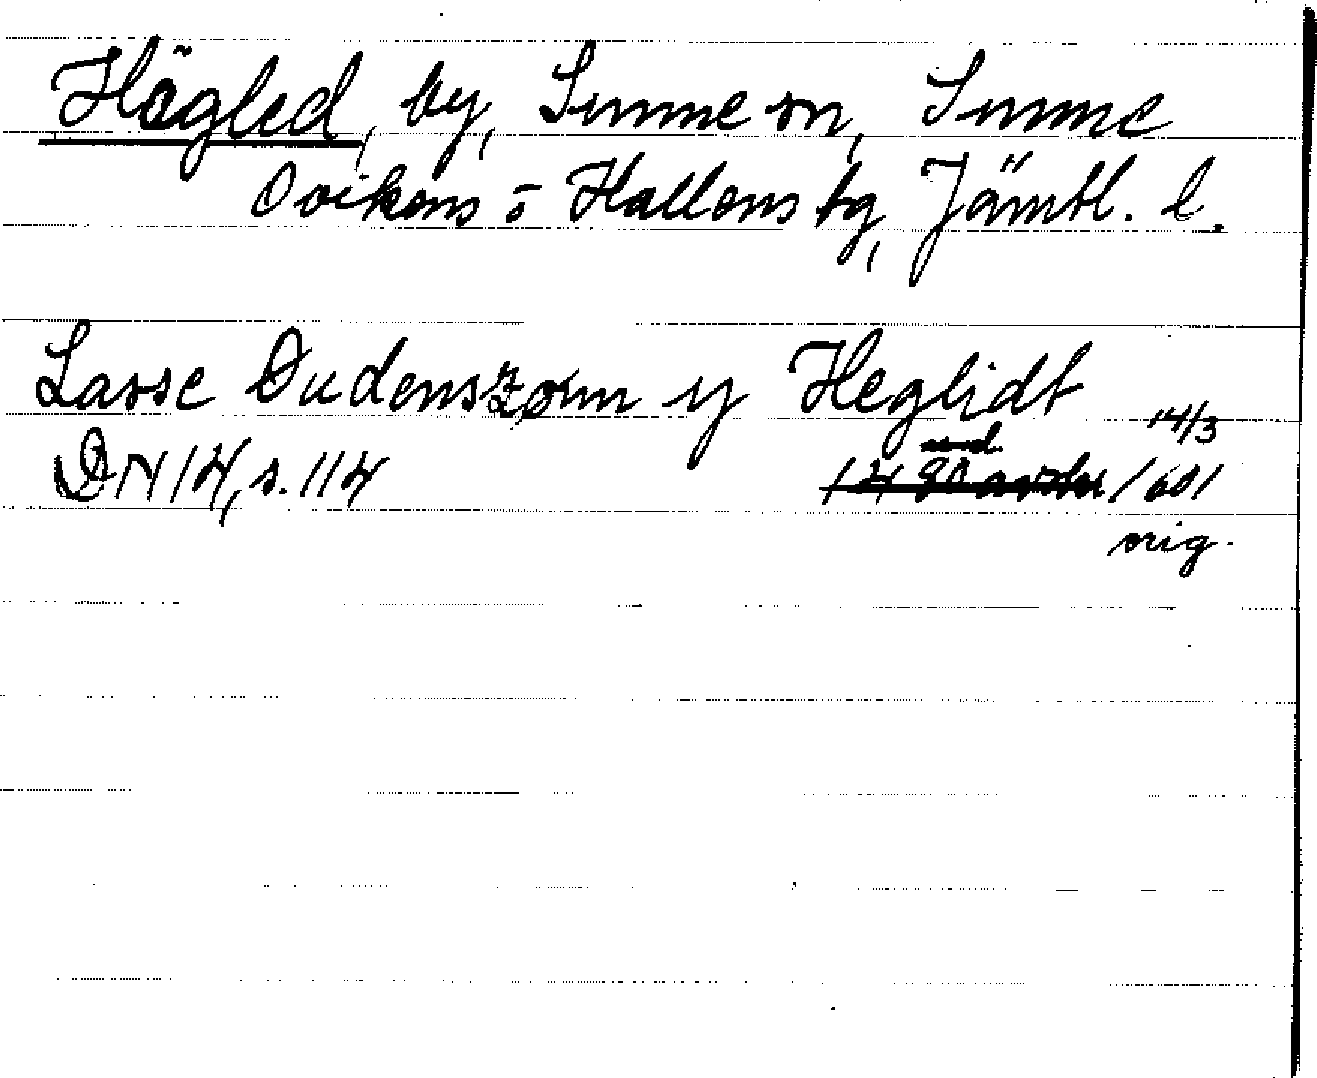 Högled, by, Sunne sn, Sunne
Ovikens o Hallens tg, Jämtl. l.
Lasse Oudenszønn y Heglidt
14/3
DN 14, s. 114 1601
orig.